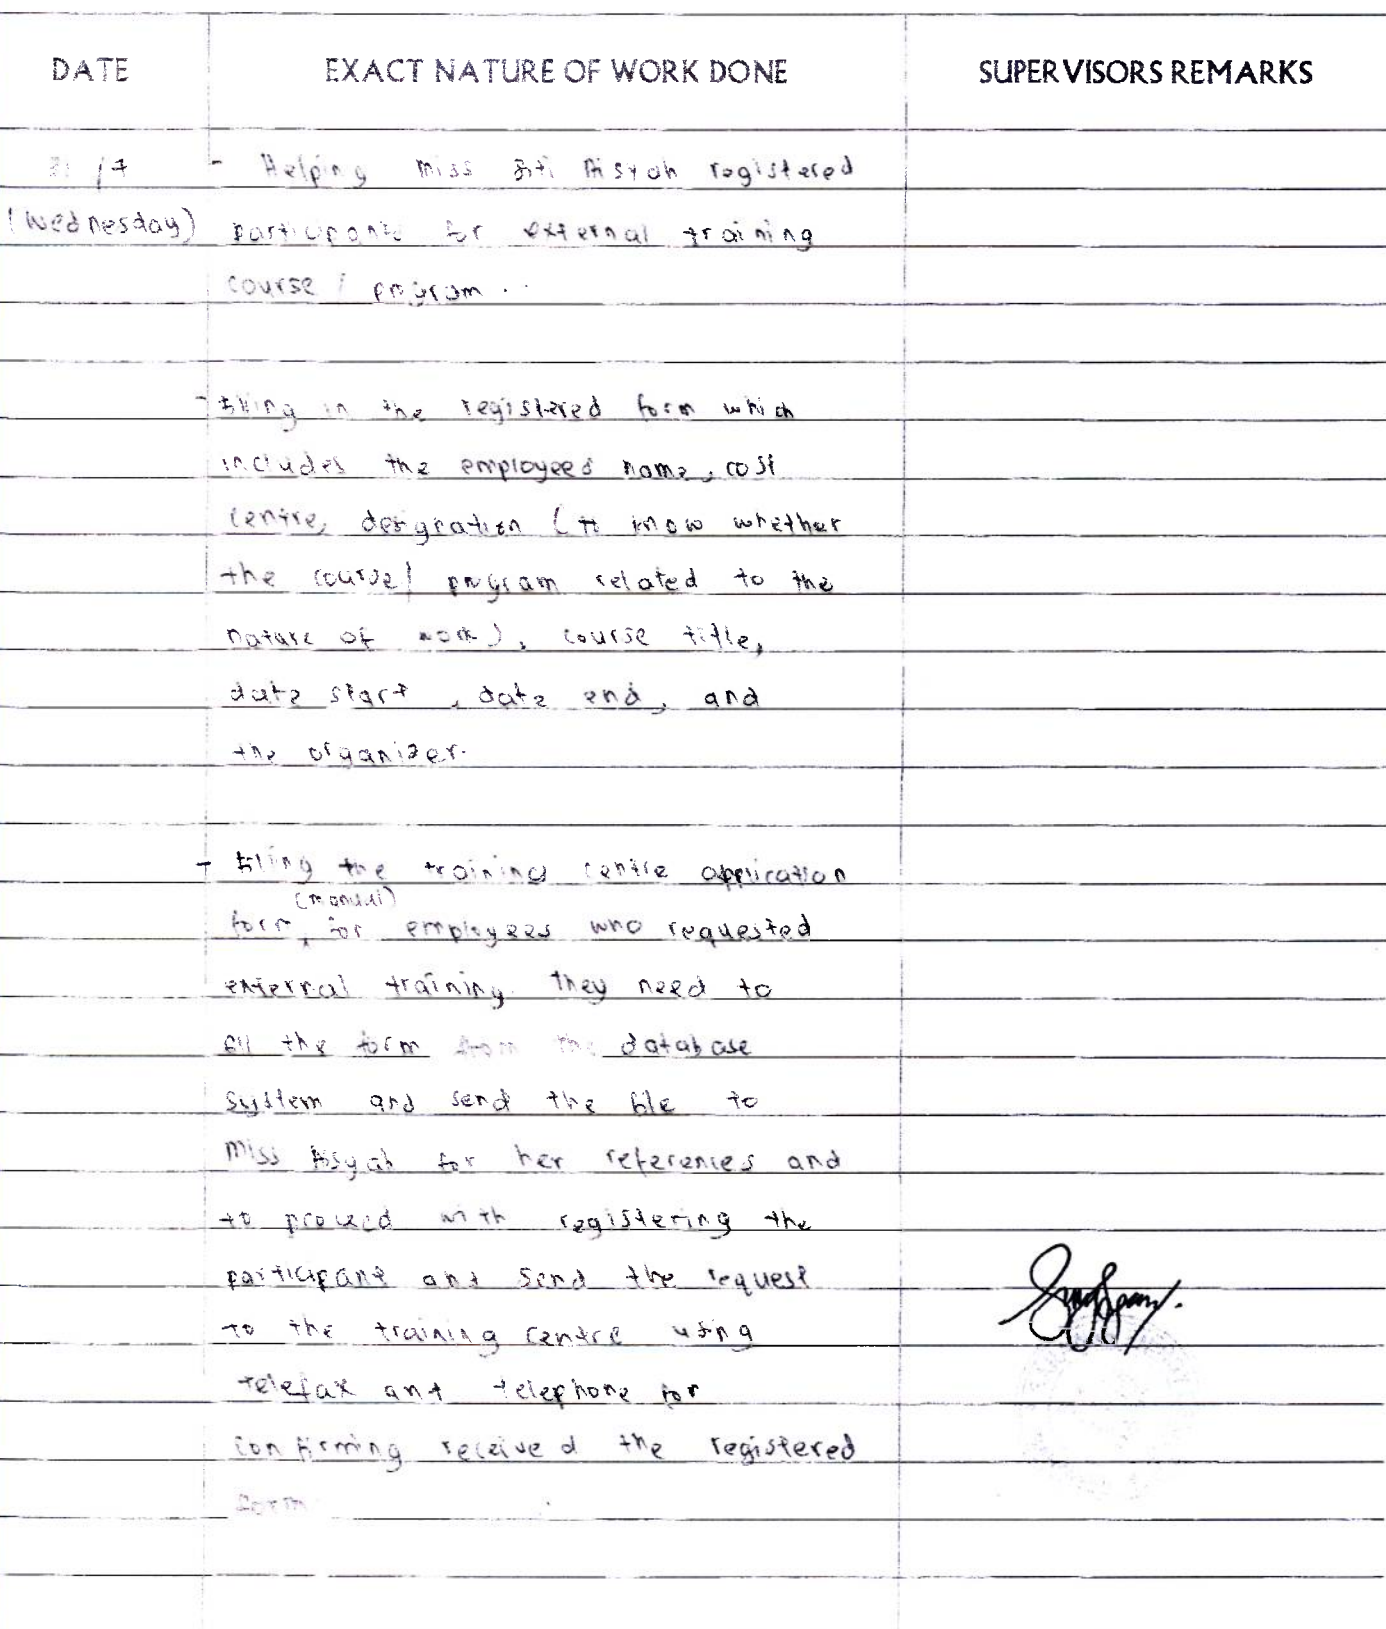 DATE EXACT NATURE OF WORK DONE SUPERVISORS REMARKS
31/7 - Helping Miss Siti Aisyah registered
(Wednesday) participants for external training
course / program.
- Filling in the registered form which
includes the employees name, cost
centre, designation (to know whether
the course/ program related to the
nature of work), course title,
date start, date end, and
the organizer.
- Filing the training centre application
(manual)
form, for employees who requested
external training they need to
fill the form from the database
system and send the file to
Miss Aisyah for her references and
to proceed with registering the
participant and send the request
to the training centre using
telefax and telephone for
confirming received the registered
form